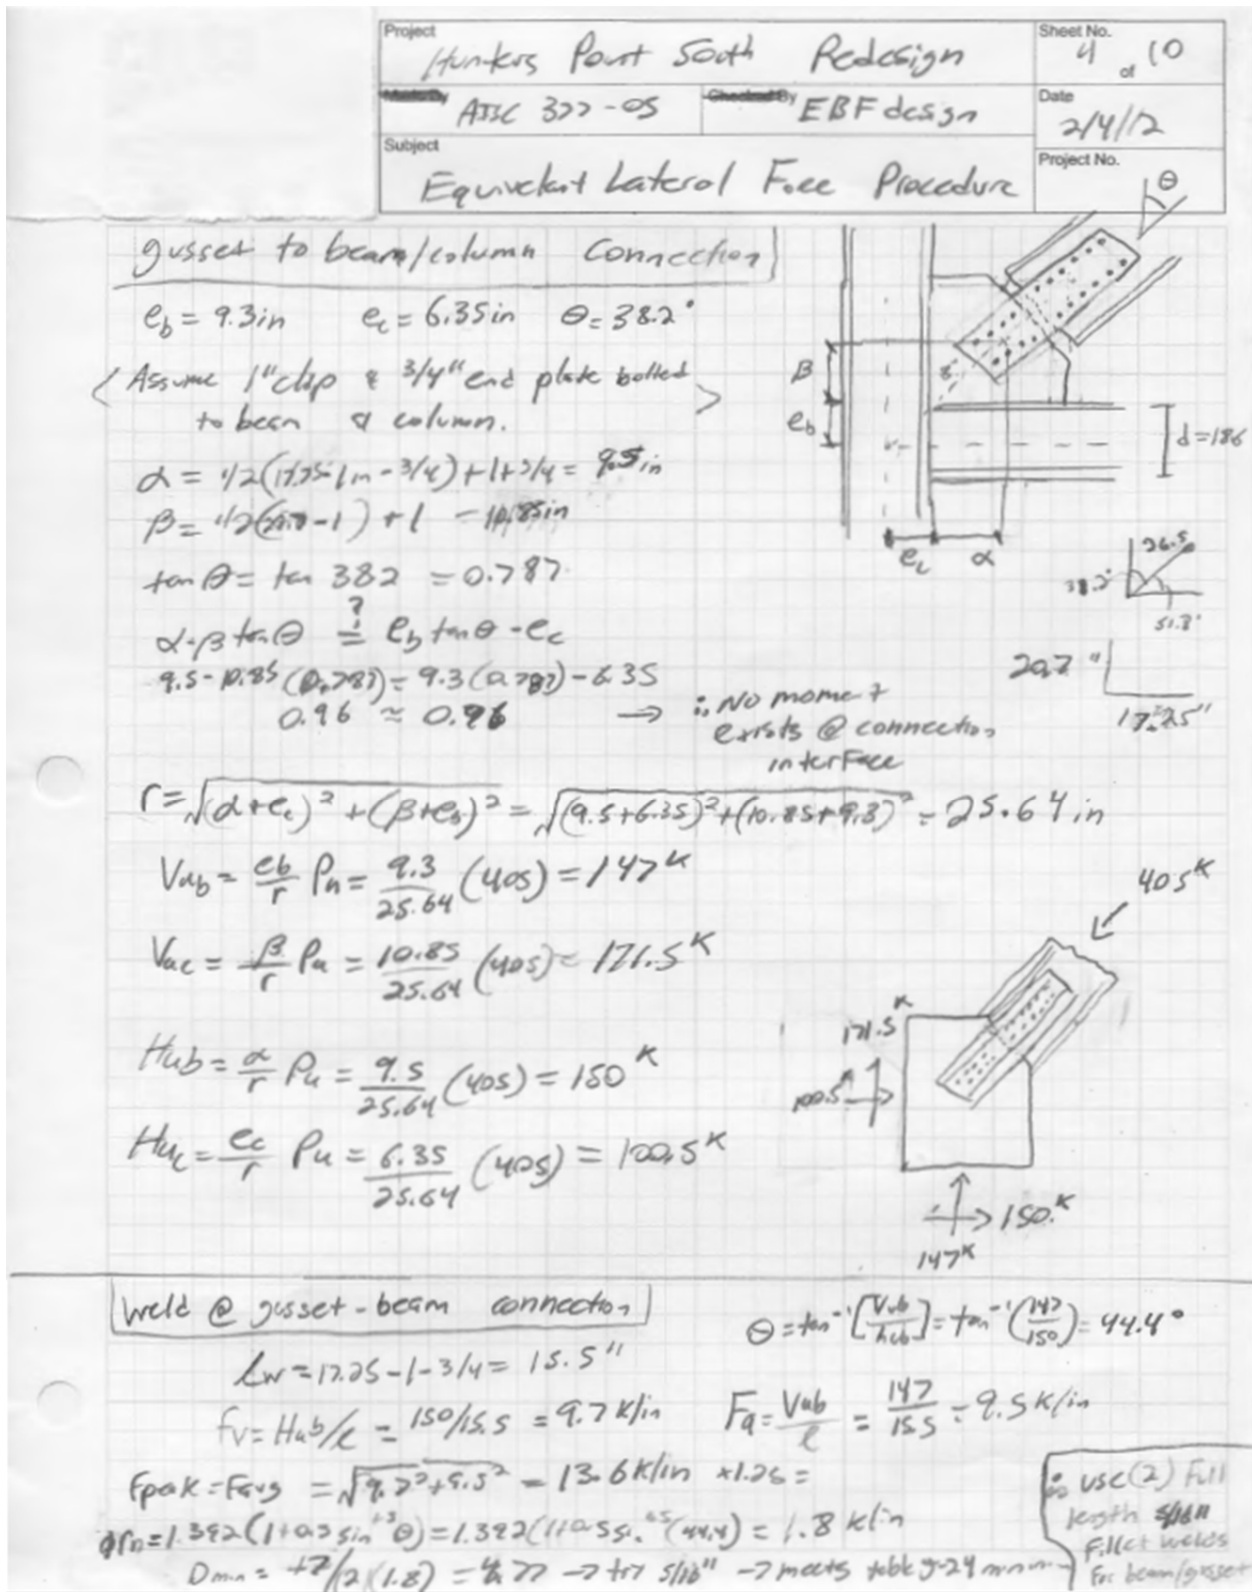 Project
Hunters Point South Redesign
Sheet No.
4 of 10
AISC 327-05
EBF design
Date
2/4/12
Subject
Equivelant Lateral Force Procedure
Project No.
θ
gusset to beam/column Connection
e_b = 9.3in e_c = 6.35in θ = 38.2°
< Assume 1" clip & 3/4" end plate bolted >
to beam & column.
β
e_b
d=186
α = 1/2(17.25-1in-3/4)+1+3/4 = 9.5in
β = 1/2(20.7-1)+1 = 10.85in
e_c α
tan θ = tan 38.2 = 0.787
36.5
38.2°
51.8°
α-β tanθ ?= e_b tanθ - e_c
9.5-10.85(0.787) = 9.3(0.787)-6.35
0.96 ≈ 0.96 → ∴ No moment
exists @ connection
interface
20.7"
17.25"
r = √(α+e_c)² + (β+e_b)² = √(9.5+6.35)²+(10.85+9.3)² = 25.64 in
V_ub = eb/r Pu = 9.3/25.64 (405) = 147ᴷ
405ᴷ
V_uc = β/r Pu = 10.85/25.64 (405) = 171.5ᴷ
171.5ᴷ
H_ub = α/r Pu = 9.5/25.64 (405) = 150ᴷ
100.5
H_uc = e_c/r Pu = 6.35/25.64 (405) = 100.5ᴷ
150.ᴷ
147ᴷ
Weld @ gusset-beam connection
θ = tan⁻¹[Vub/hub] = tan⁻¹(147/150) = 44.4°
Lw = 17.25-1-3/4 = 15.5"
fv = Hub/ℓ = 150/15.5 = 9.7 K/in Fa = Vub/ℓ = 147/15.5 = 9.5 K/in
Fpeak = Favg = √9.7²+9.5² = 13.6 K/in x1.25 =
ϕrn = 1.392(1+0.5 sin^1.5 θ) = 1.392(1+0.5 sin^1.5(44.4)) = 1.8 k/in
Dmin = /2(1.8) = → try 5/16" → meets table min
∴ use (2) Full
length 5/16"
Fillet welds
For beam/gusset